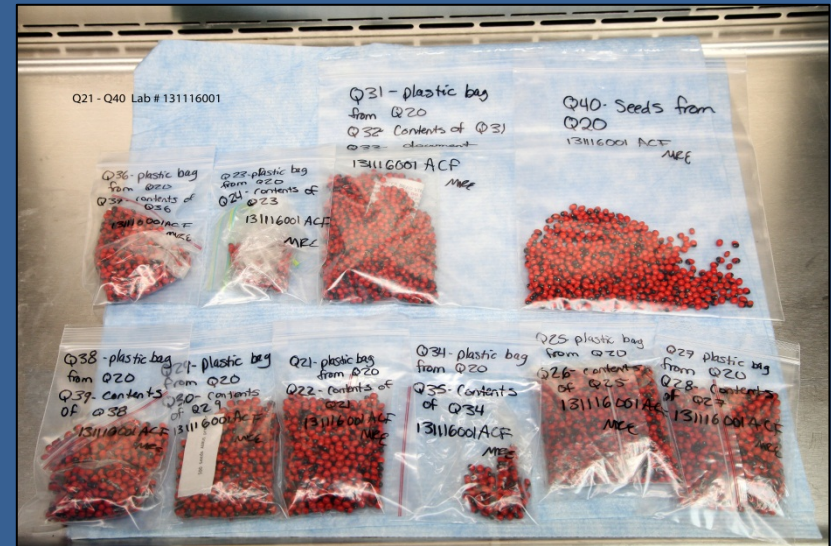 Q21 - Q40 Lab # 131116001
Q31- plastic bag
from Q20
Q32- Contents of Q31
Q33- document
131116001 ACF
MRE
Q40- Seeds from
Q20
131116001 ACF
MRE
Q36- plastic bag
from Q20
Q37- contents of
Q36
131116001 ACF
MRE
Q23- plastic bag
from Q20
Q24- contents of
Q23
131116001 ACF
MRE
Q38 - plastic bag
from Q20
Q39- contents
of Q38
131116001 ACF
MRE
Q29- plastic bag
from Q20
Q30- contents
of Q29
131116001 ACF
MRE
Q21- plastic bag
from Q20
Q22- contents of
Q21
131116001 ACF
MRE
Q34- plastic bag
from Q20
Q35- Contents
of Q34
131116001 ACF
MRE
Q25- plastic bag
from Q20
Q26- contents
of Q25
131116001 AC
MRE
Q27 plastic bag
from Q20
Q28- Contents
of Q27
131116001 ACF
MRE